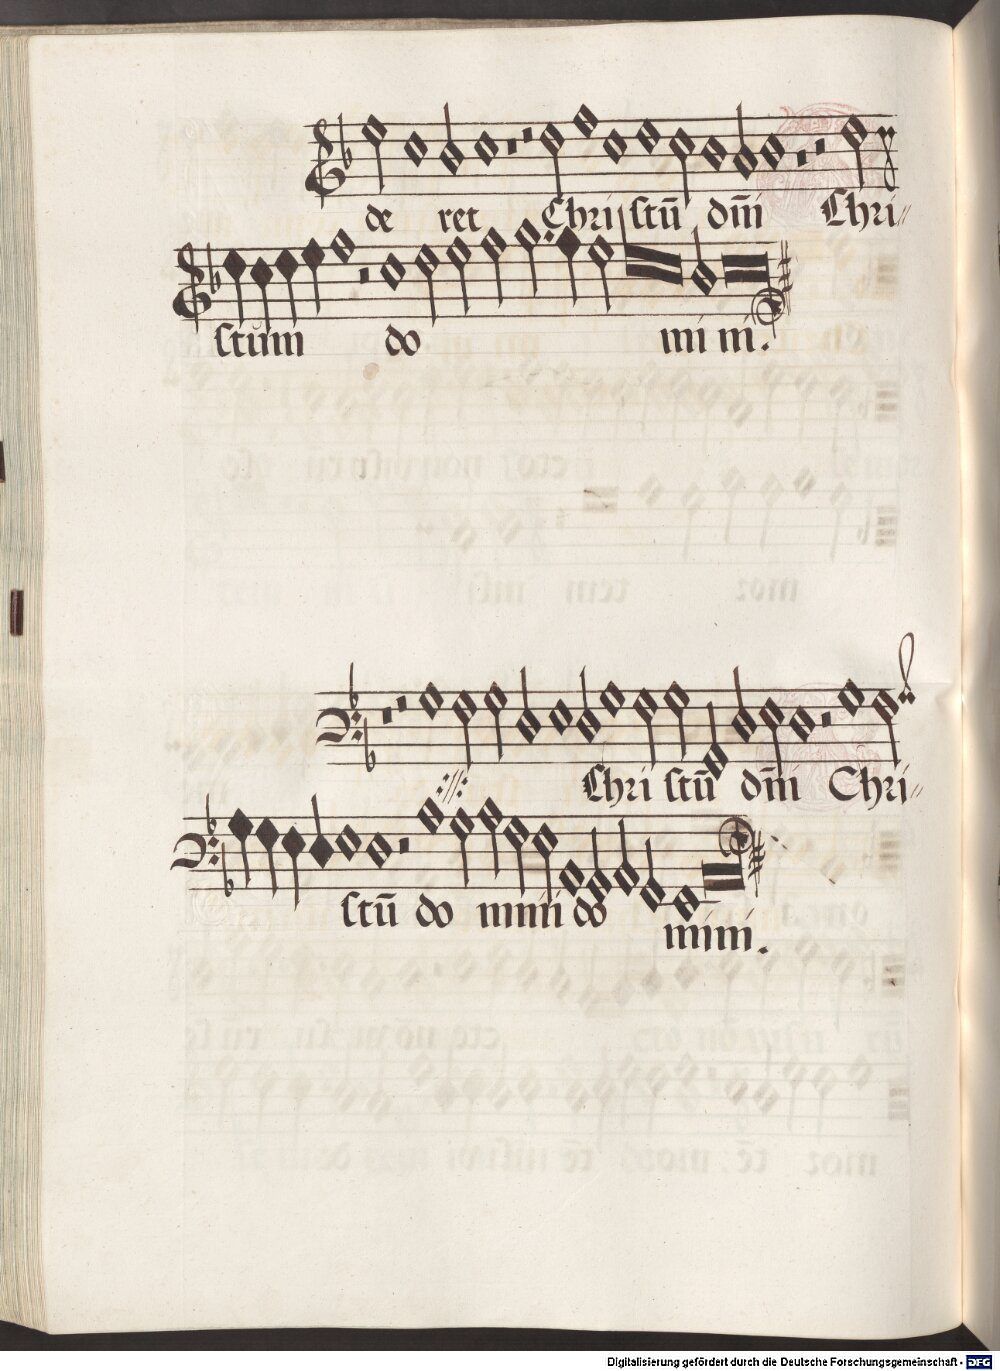 de ret Chri stū dm̄ Chri⸗
stum do mi ni.
Chri stū dm̄ Chri⸗
stū do mini do
mini.
Digitalisierung gefördert durch die Deutsche Forschungsgemeinschaft - DFG